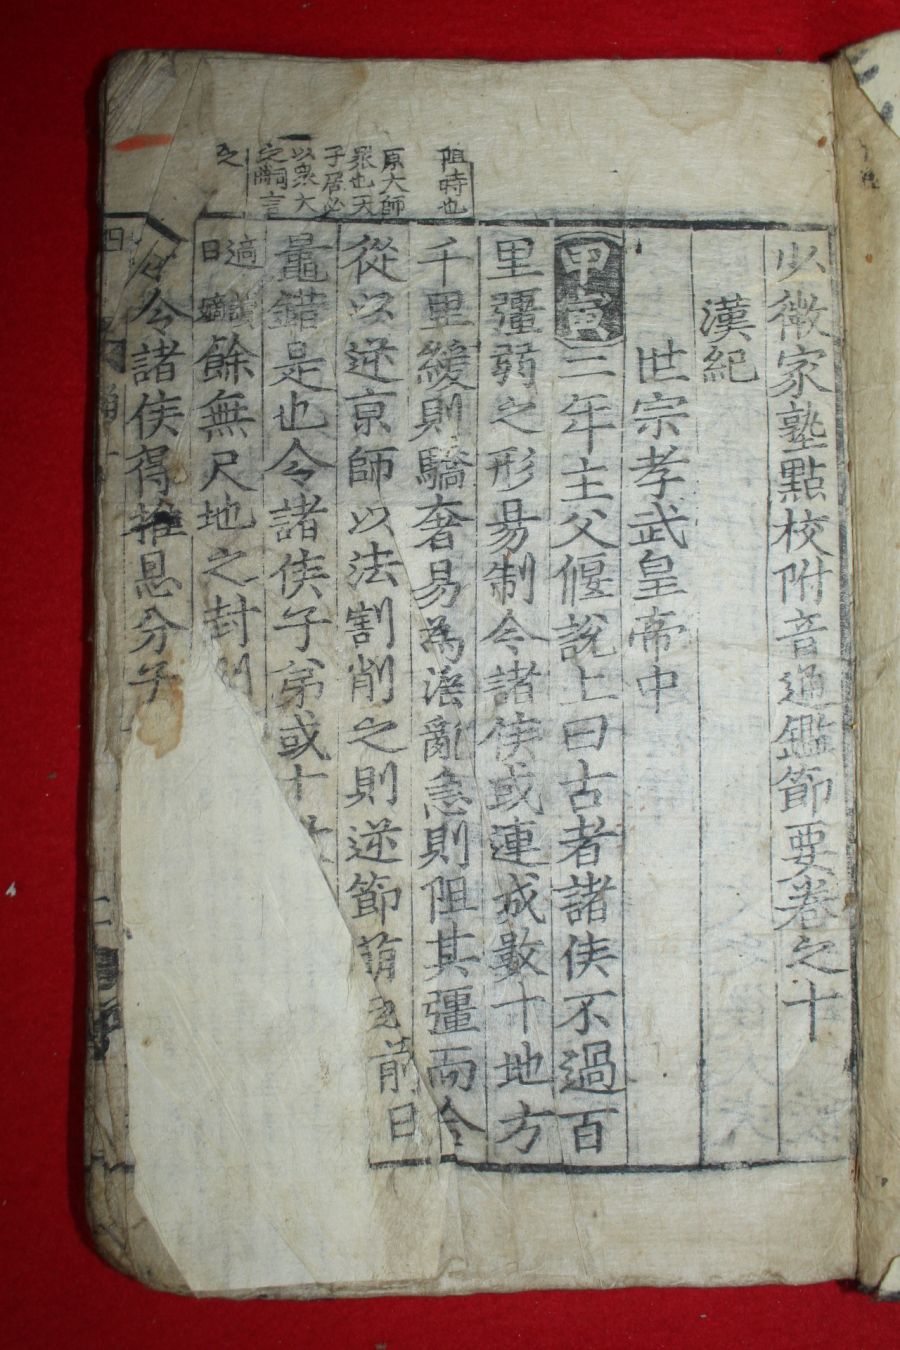 少微家塾點校附音通鑑節要卷之十
漢紀
世宗孝武皇帝中
甲寅三年主父偃說上曰古者諸侯不過百
里彊弱之形易制今諸侯或連城數十地方
千里緩則驕奢易為淫亂急則阻其彊而合
從以逆京師以法割削之則逆節萌起前日
鼂錯是也今諸侯子弟或十數
適餘無尺地之封則
令諸侯得推恩分子
阻時也
京大師
眾也天
子居必
以眾大
之詞言
之